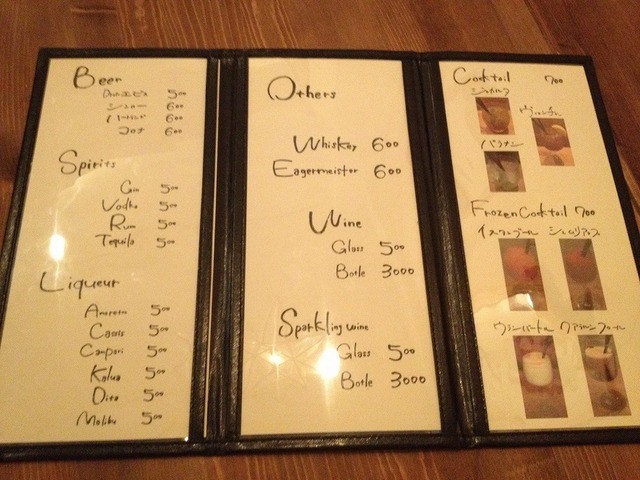 Beer
エビス 500
シンハー 600
ハートランド 600
コロナ 600
Spirits
Gin 500
Vodka 500
Rum 500
Tequila 500
Liqueur
Amaretto 500
Cassis 500
Campari 500
Kalua 500
Dita 500
Malibu 500
Others
Whiskey 600
Eagermeister 600
Wine
Glass 500
Botle 3000
Sparkling wine
Glass 500
Botle 3000
Cocktail 700
Frozen Cocktail 700
イスタンブール シェムリアップ
クアラルンプール